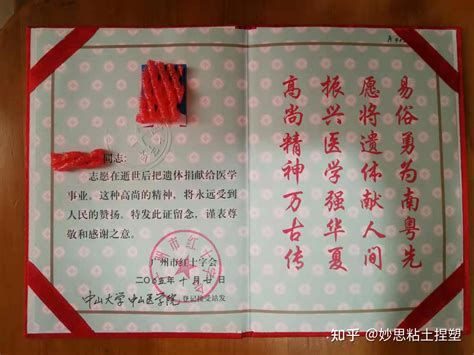 同志:
志愿在逝世后把遗体捐献给医学
事业。这种高尚的精神，将永远受到
人民的赞扬。特发此证留念，谨表尊
敬和感谢之意。
广州市红十字会
二〇〇五年十月廿日
中山大学中山医学院登记接受站发
易俗勇为南粤先
愿将遗体献人间
振兴医学强华夏
高尚精神万古传
知乎 @妙思粘土捏塑